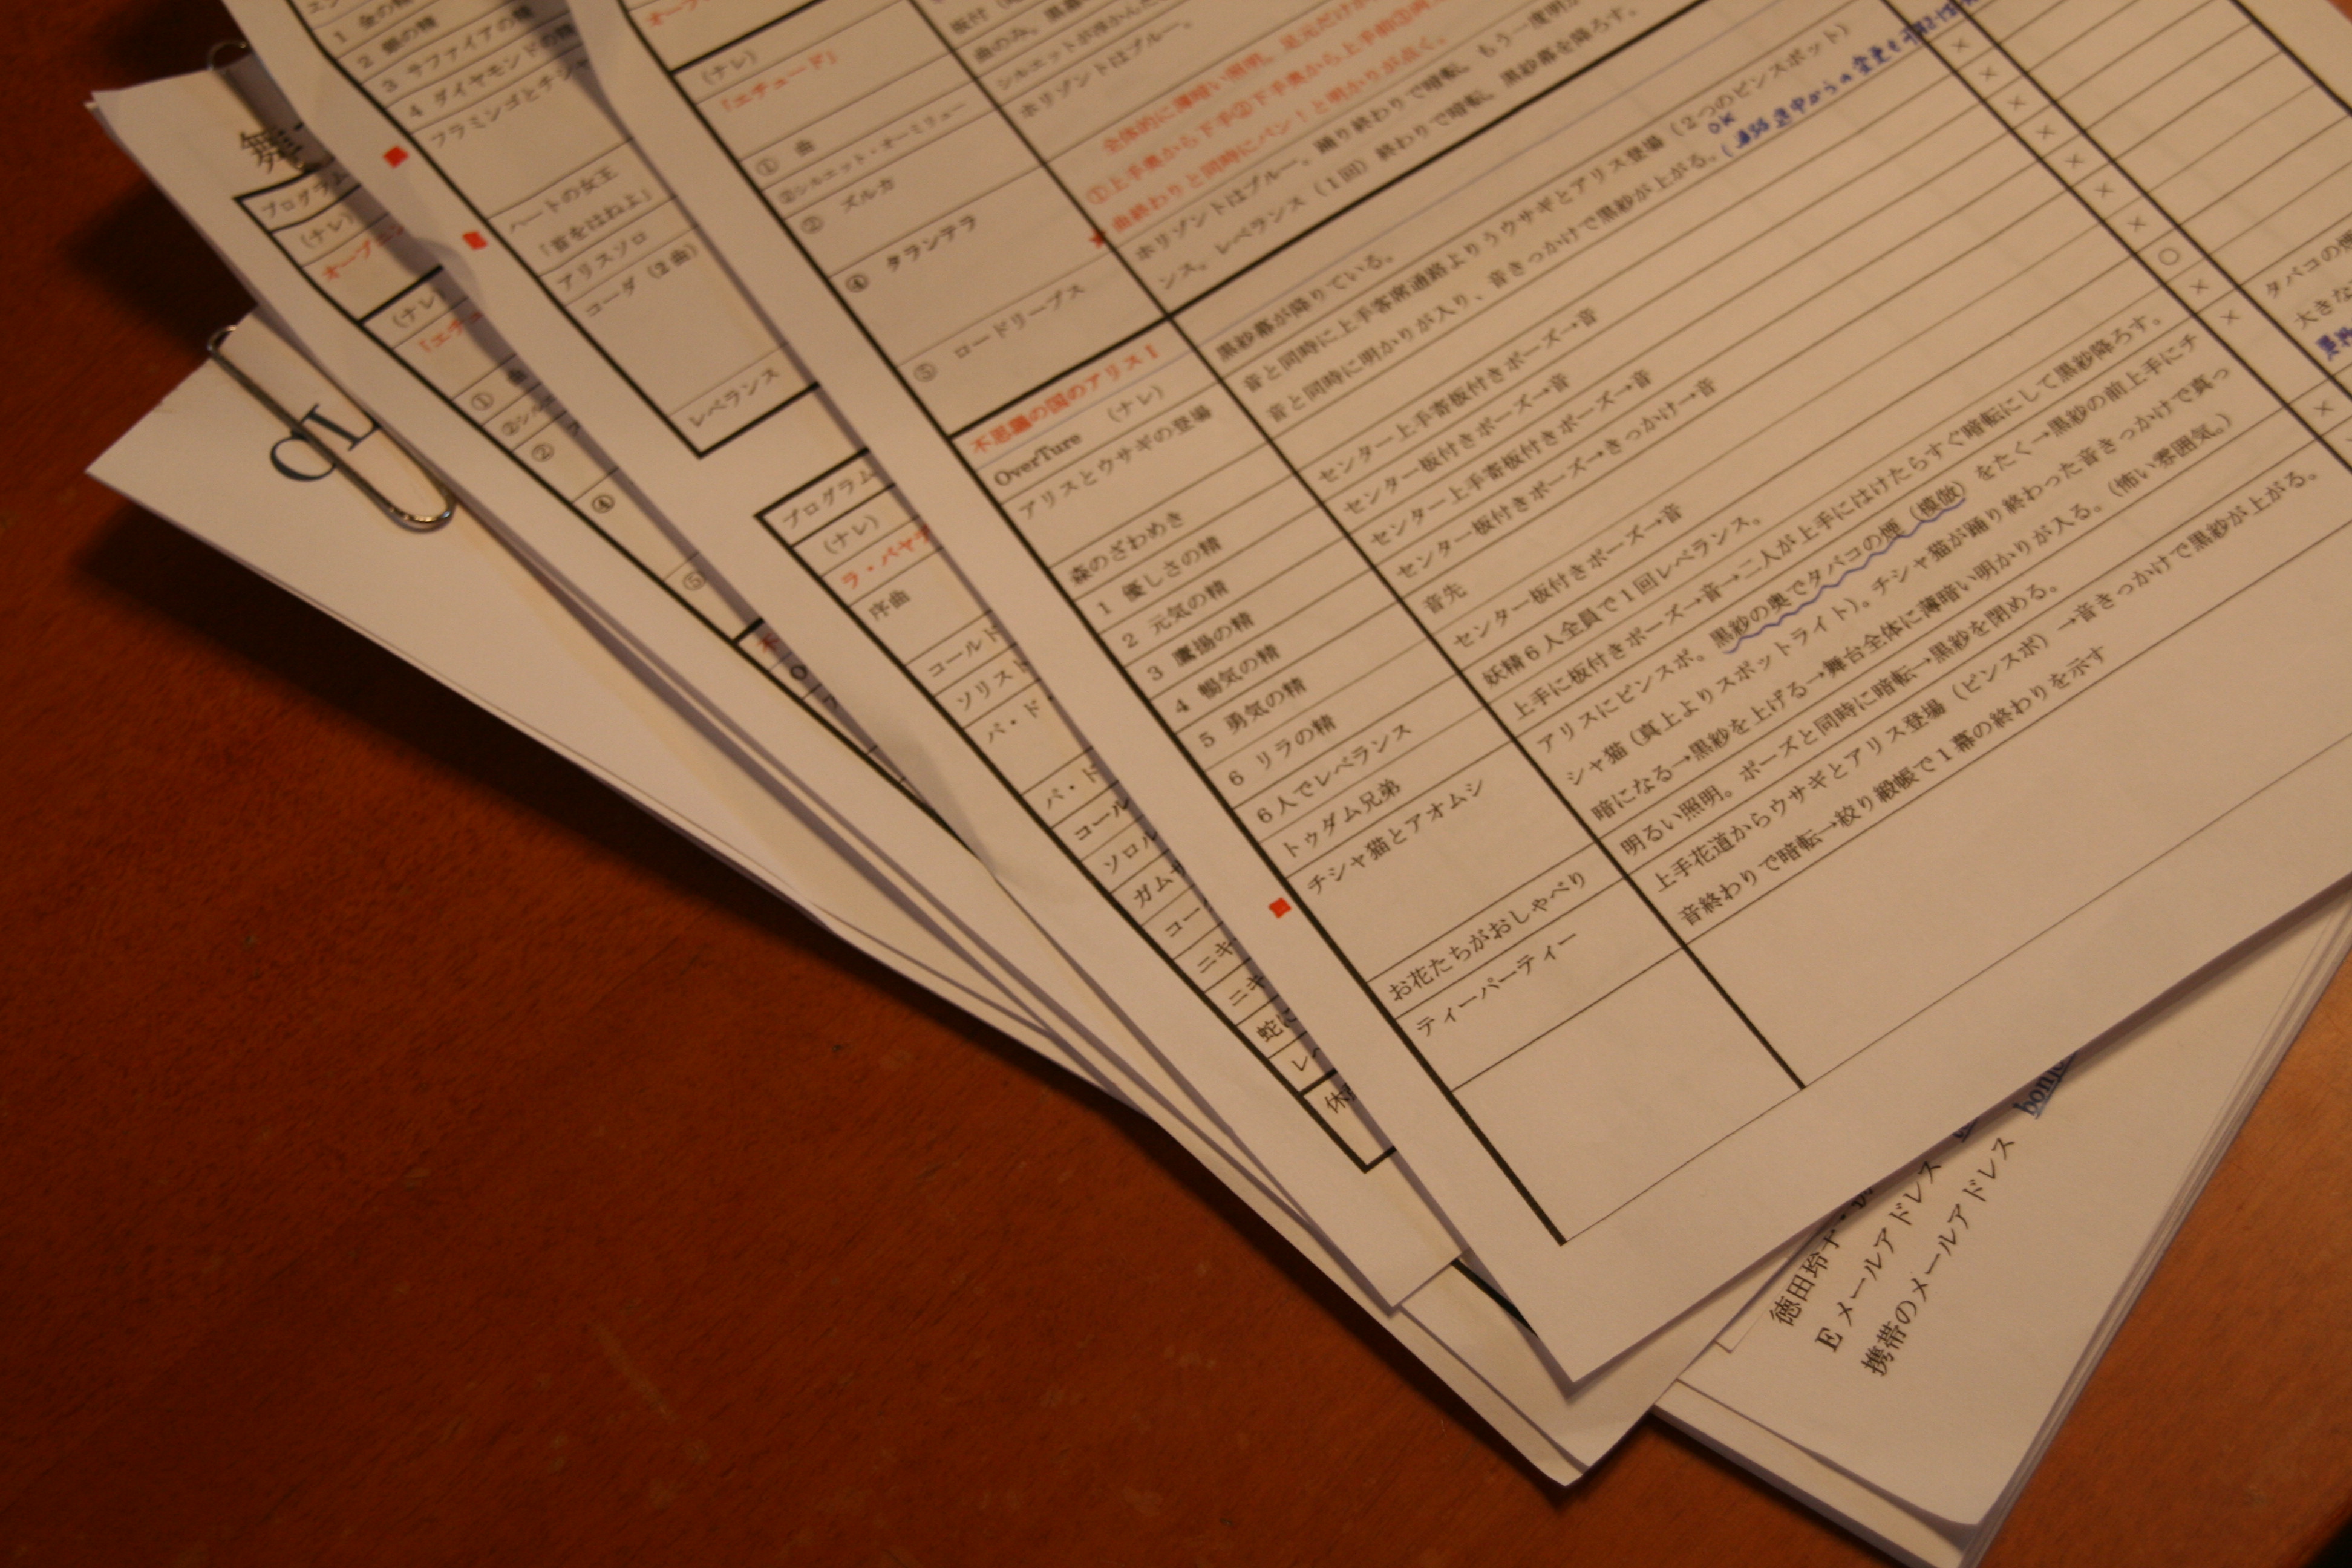 1 金の精
2 銀の精
3 サファイアの精
4 ダイヤモンドの精
フラミンゴとチシャ
ハートの女王
「首をはねよ」
アリスソロ
コーダ(2曲)
レベランス
舞
プログラム
(ナレ)
オープニン
(ナレ)
『エチュ
① 曲
②シル
②
④
⑤
プログラム
(ナレ)
ラ・バヤデ
序曲
コールド
ソリスト
パ・ド
パ・ド
コール
ソロル
ガムザ
コー
ニキ
ニキ
蛇に
レベ
休
(ナレ)
『エチュード』
① 曲
②シルエット・オーミリュー
② ズルカ
④ タランテラ
⑤ ロードリーブス
シルエットが浮かんだ
ホリゾントはブルー。
全体的に薄暗い照明。足元だけが
①上手奥から下手②下手奥から上手前③両
★曲終わりと同時にパン!と明かりが点く。
ホリゾントはブルー。踊り終わりで暗転、もう一度明か
ンス。レベランス(1回)終わりで暗転。黒紗幕を降ろす。
不思議の国のアリスⅠ
OverTure (ナレ)
黒紗幕が降りている。
アリスとウサギの登場
音と同時に上手客席通路よりウサギとアリス登場(2つのピンスポット)
OK
音と同時に明かりが入り、音きっかけで黒紗が上がる。
森のざわめき
1 優しさの精
センター上手寄板付きポーズ→音
2 元気の精
センター板付きポーズ→音
3 鷹揚の精
センター上手寄板付きポーズ→音
4 暢気の精
センター板付きポーズ→きっかけ→音
5 勇気の精
音先
6 リラの精
センター板付きポーズ→音
6人でレベランス
妖精6人全員で1回レベランス。
トゥダム兄弟
上手に板付きポーズ→音→二人が上手にはけたらすぐ暗転にして黒紗降ろす。
チシャ猫とアオムシ
アリスにピンスポ。黒紗の奥でタバコの煙(模倣)をたく→黒紗の前上手にチ
シャ猫(真上よりスポットライト)。チシャ猫が踊り終わった音きっかけで真っ
暗になる→黒紗を上げる→舞台全体に薄暗い明かりが入る。(怖い雰囲気。)
お花たちがおしゃべり
明るい照明。ポーズと同時に暗転→黒紗を閉める。
ティーパーティー
上手花道からウサギとアリス登場(ピンスポ)→音きっかけで黒紗が上がる。
音終わりで暗転→絞り緞帳で1幕の終わりを示す
×
×
×
×
×
×
×
○
×
×
×
タバコの煙
大きな
徳田玲子
Eメールアドレス
携帯のメールアドレス
bonj